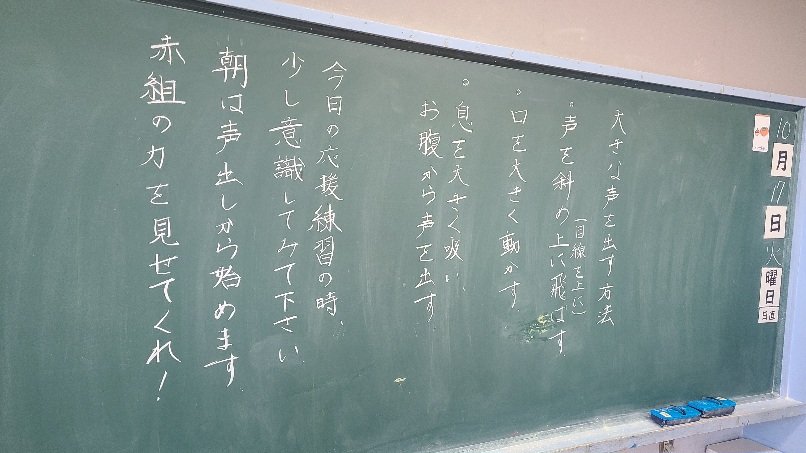 10月17日火曜日
日直
大きな声を出す方法
・声を斜め上に飛ばす
(目線を上に)
・口を大きく動かす
・息を大きく吸い、
お腹から声を出す
今日の応援練習の時、
少し意識してみて下さい
朝は声出しから始めます
赤組の力を見せてくれ!